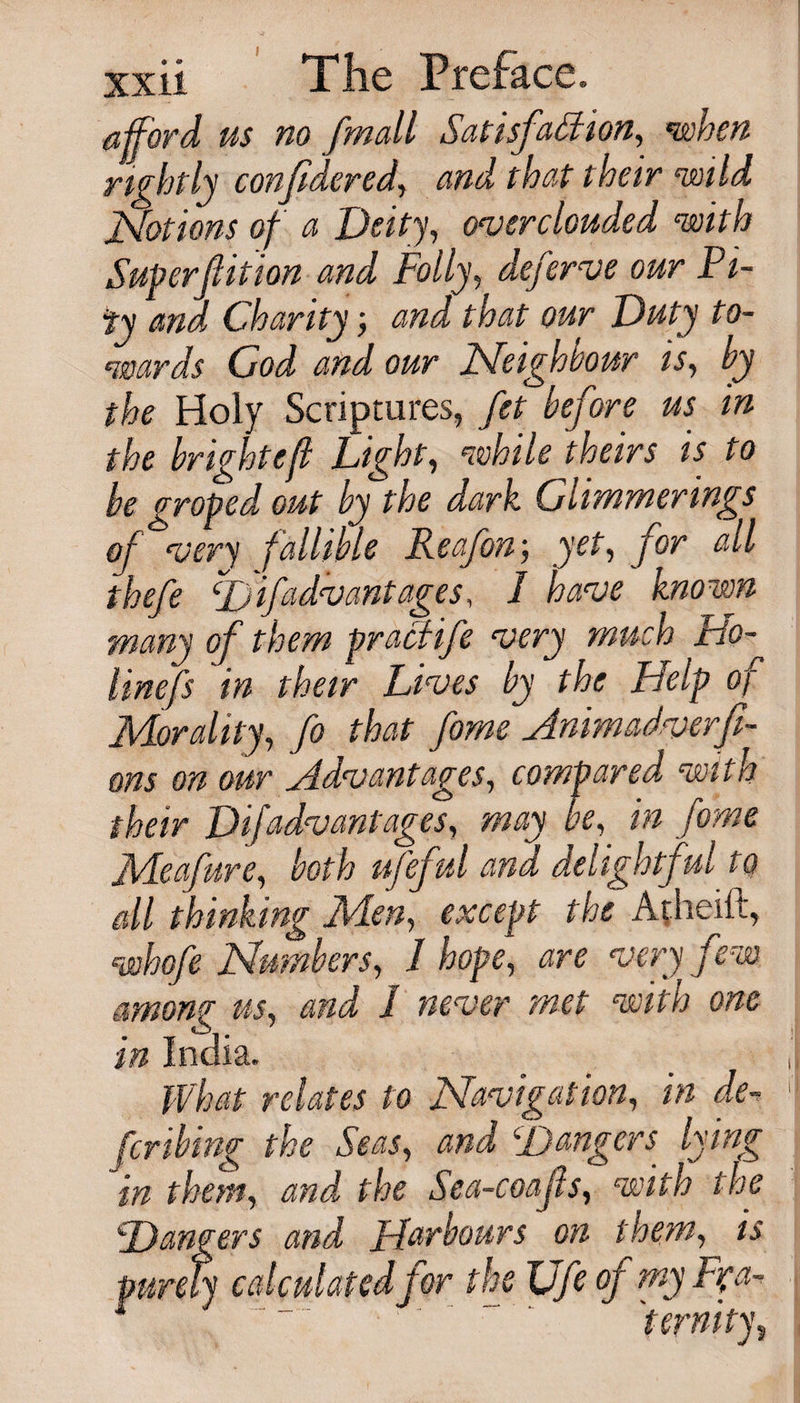 xxii The Preface.
afford us no ſmall Satisfaction, when
rightly conſidered, and that their wild
Notions of a Deity, overclouded with
Superſtition and Folly, deſerve our Pi-
ty and Charity; and that our Duty to-
wards God and our Neighbour is, by
the Holy Scriptures, ſet before us in
the brighteſt Light, while theirs is to
be groped out by the dark Glimmerings
of very fallible Reaſon; yet, for all
theſe Diſadvantages, I have known
many of them practiſe very much Ho-
lineſs in their Lives by the Help of
Morality, ſo that ſome Animadverſi-
ons on our Advantages, compared with
their Diſadvantages, may be, in ſome
Meaſure, both uſeful and delightful to
all thinking Men, except the Atheiſt,
whoſe Numbers, I hope, are very few
among us, and I never met with one
in India.
What relates to Navigation, in de-
ſcribing the Seas, and Dangers lying
in them, and the Sea-coaſts, with the
Dangers and Harbours on them, is
purely calculated for the Uſe of my Fra-
ternity,